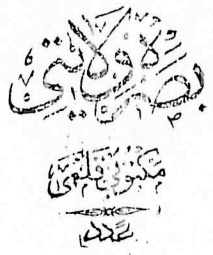 بصره ولايتى
مكتوبى قلمى
عدد